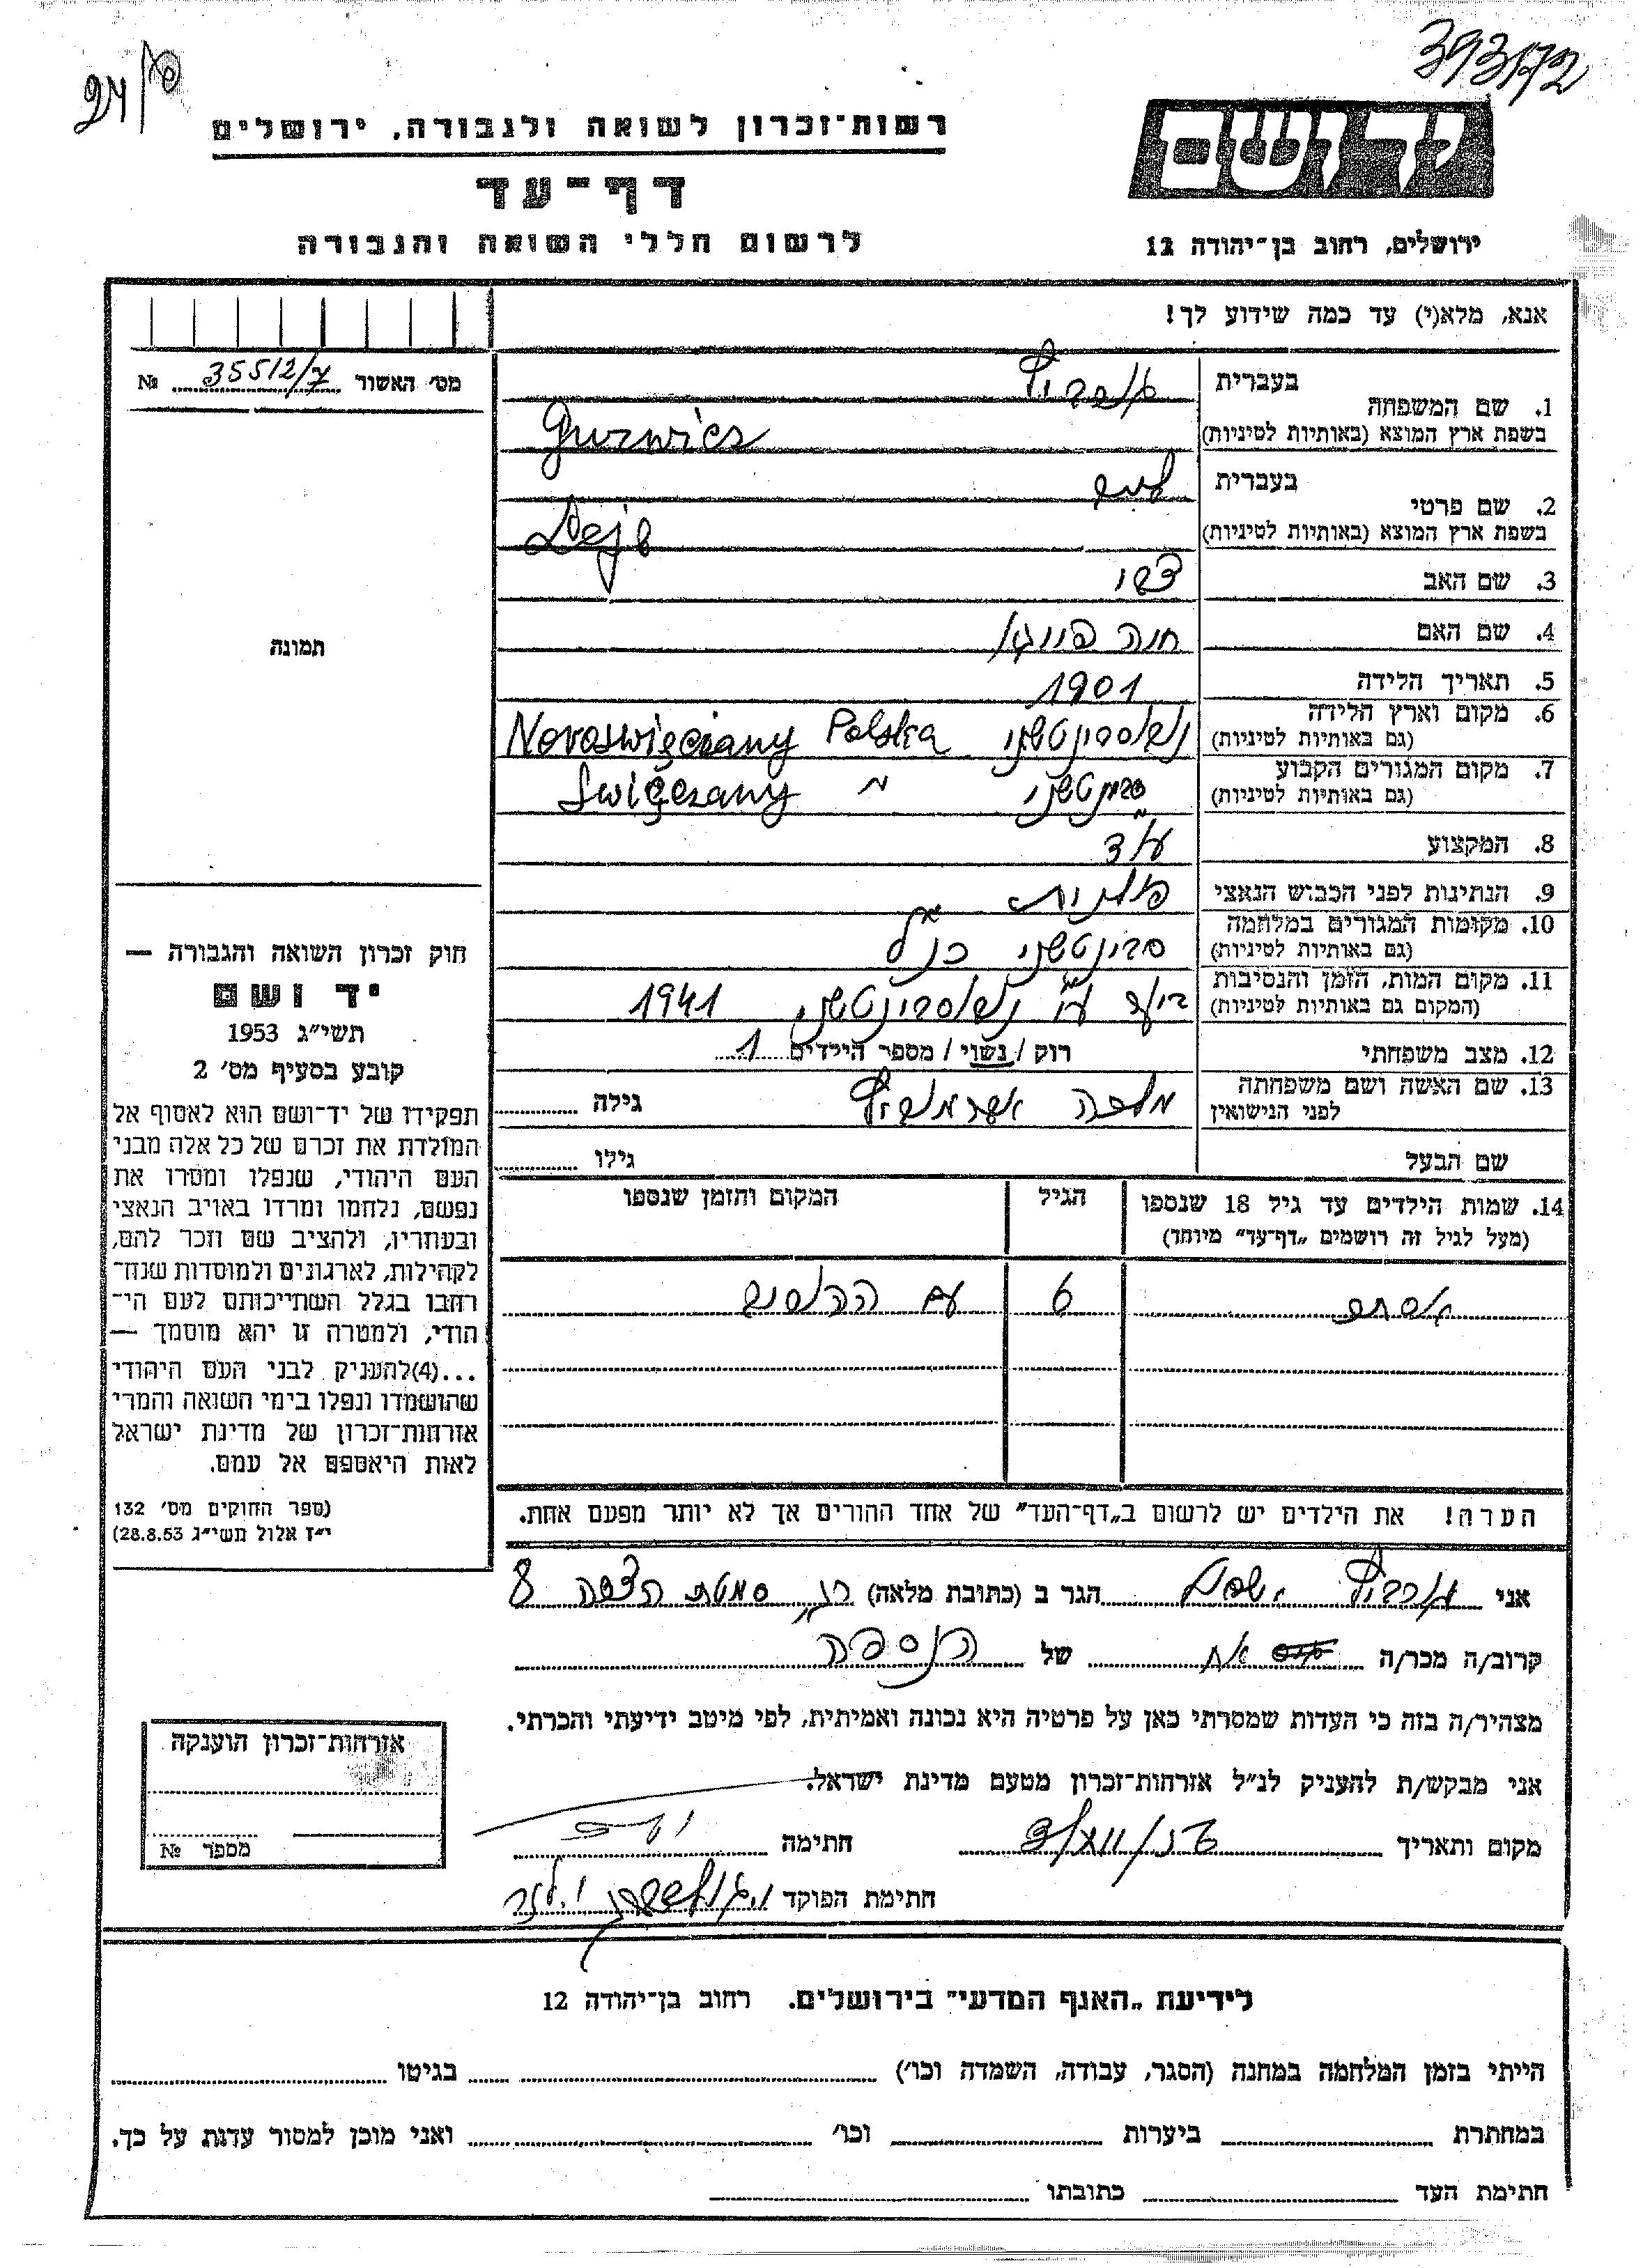 393172
24/
יד ושם
רשות־זכרון לשואה ולגבורה, ירושלים
דף־עד
לרשום חללי השואה והגבורה
ירושלים, רחוב בן־יהודה 12
אנא, מלא(י) עד כמה שידוע לך!
מס׳ האשור 35512/7 №
1. שם המשפחה
בעברית גורביץ
בשפת ארץ המוצא (באותיות לטיניות) Gurwicz
2. שם פרטי
בעברית לייב
בשפת ארץ המוצא (באותיות לטיניות) Lejb
3. שם האב צבי
4. שם האם חנה פייגע
5. תאריך הלידה 1901
6. מקום וארץ הלידה
(גם באותיות לטיניות) Novoswięciany Polska
7. מקום המגורים הקבוע
(גם באותיות לטיניות) סוינטשני " Swięczany
8. המקצוע עו"ד
9. הנתינות לפני הכבוש הנאצי פולנית
10. מקומות המגורים במלחמה
(גם באותיות לטיניות) סוינטשני כנ"ל
11. מקום המות, הזמן והנסיבות
(המקום גם באותיות לטיניות) ביער ע"י 1941
12. מצב משפחתי רוק / נשוי / מספר הילדים 1
13. שם האשה ושם משפחתה
לפני הנישואין גילה
שם הבעל גילו
14. שמות הילדים עד גיל 18 שנספו
(מעל לגיל זה רושמים „דף־עד” מיוחד)
הגיל
המקום והזמן שנספו
6 עם ההורים
הערה! את הילדים יש לרשום ב„דף־העד” של אחד ההורים אך לא יותר מפעם אחת.
אני גורביץ הגר ב (כתובת מלאה) סמטת 8
קרוב/ה מכר/ה אח של הנספה
מצהיר/ה בזה כי העדות שמסרתי כאן על פרטיה היא נכונה ואמיתית, לפי מיטב ידיעתי והכרתי.
אני מבקש/ת להעניק לנ״ל אזרחות־זכרון מטעם מדינת ישראל.
מקום ותאריך
חתימה
חתימת הפוקד
תמונה
חוק זכרון השואה והגבורה —
יד ושם
תשי״ג 1953
קובע בסעיף מס׳ 2
תפקידו של יד־ושם הוא לאסוף אל
המולדת את זכרם של כל אלה מבני
העם היהודי, שנפלו ומסרו את
נפשם, נלחמו ומרדו באויב הנאצי
ובעוזריו, ולהציב שם וזכר להם,
לקהילות, לארגונים ולמוסדות שנח־
רבו בגלל השתייכותם לעם הי־
הודי, ולמטרה זו יהא מוסמך —
...(4)להעניק לבני העם היהודי
שהושמדו ונפלו בימי השואה והמרי
אזרחות־זכרון של מדינת ישראל
לאות היאספם אל עמם.
(ספר החוקים מס׳ 132
י״ז אלול תשי״ג 28.8.53)
אזרחות־זכרון הוענקה
מספר №
לידיעת „האגף המדעי” בירושלים. רחוב בן־יהודה 12
הייתי בזמן המלחמה במחנה (הסגר, עבודה, השמדה וכו׳) בגיטו
במחתרת ביערות וכו׳ ואני מוכן למסור עדות על כך.
חתימת העד כתובתו